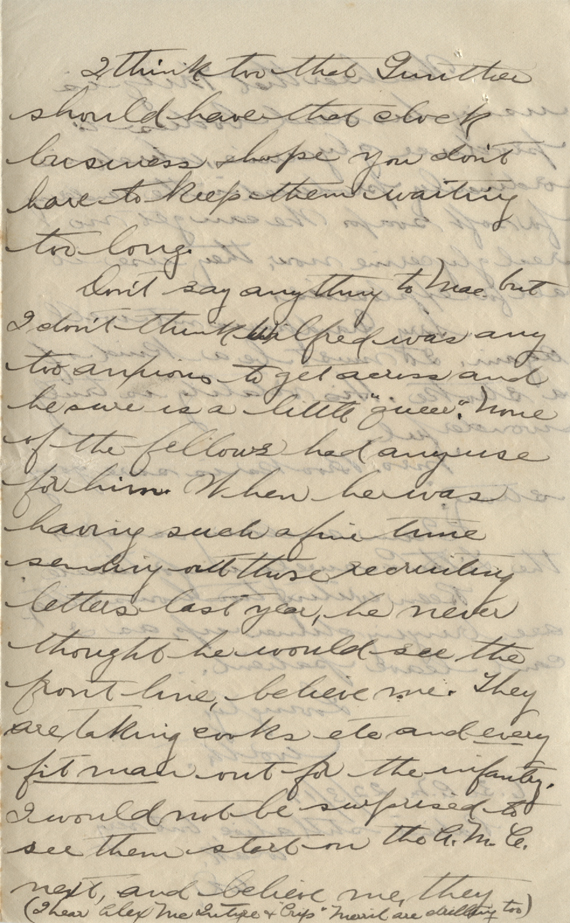 I think too that Gunther
should have that clock
business & hope you don't
have to keep them waiting
too long.
Don't say anything to Mae. but
I don't think Walfred was any
too anxious to get across and
he sure is a little "queer". None
of the fellows had any use
for him. When he was
having such a fine time
sending out those recruiting
letters last year, he never
thought he would see the
front line, believe me. They
are taking cooks etc and every
fit man out for the infantry.
I would not be surprised to
see them start on the A.M.C.
next, and believe me, they
(I hear Alex McIntyre & "Crip" Merril are drafting too)